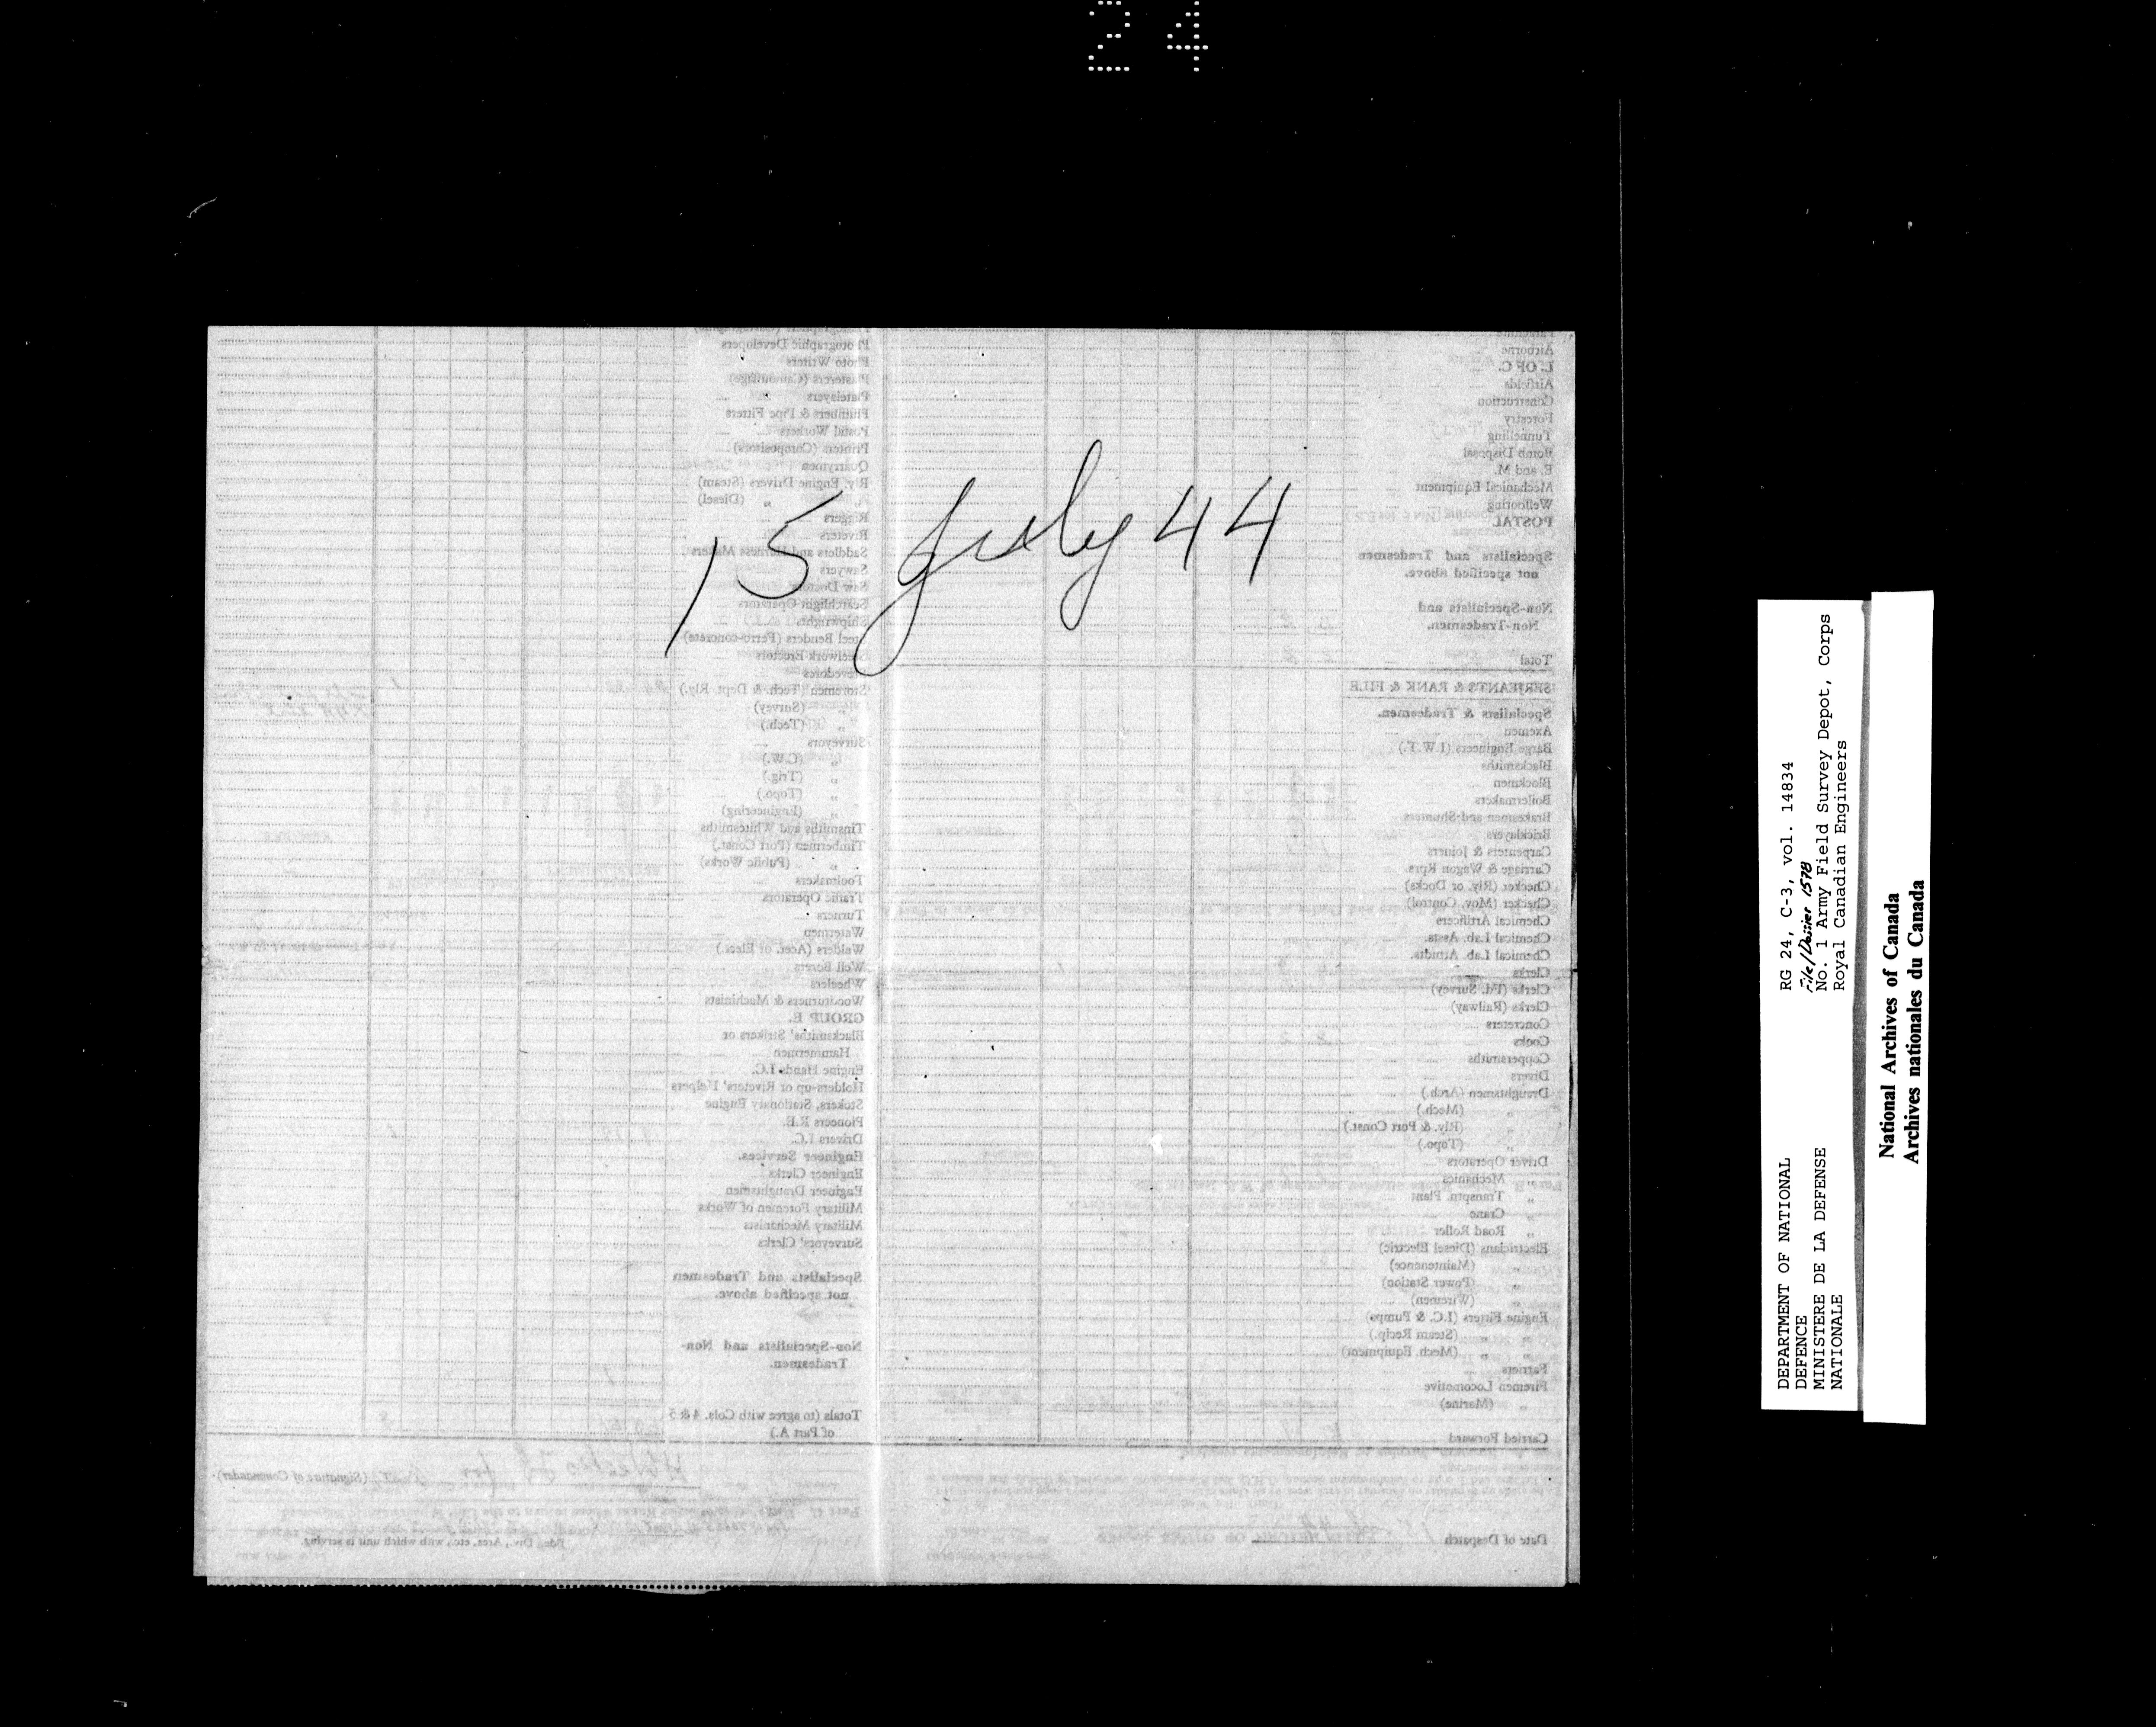 24
15 July 44
Photographic Developers
Photo Writers
Plasterers (Camouflage)
Platelayers
Plumbers & Pipe Fitters
Postal Workers
Printers (Compositors)
Quarrymen
Rly. Engine Drivers (Steam)
„ (Diesel)
Riggers
Riveters
Saddlers and Harness Makers
Sawyers
Saw Doctors
Searchlight Operators
Shipwrights
Steel Benders (Ferro-concrete)
Steelwork Erectors
Stevedores
Storemen (Tech. & Dept. Rly.)
„ (Survey)
„ (Tech.)
Surveyors
„ (C.W.)
„ (Trig.)
„ (Topo.)
„ (Engineering)
Tinsmiths and Whitesmiths
Timbermen (Port Const.)
„ (Public Works)
Toolmakers
Traffic Operators
Turners
Watermen
Welders (Acet. or Elect.)
Well Borers
Wheelers
Woodturners & Machinists
GROUP E.
Blacksmiths' Strikers or
Hammermen
Engine Hands I.C.
Holders-up or Riveters' Helpers
Stokers, Stationary Engine
Pioneers R.E.
Drivers I.C.
Engineer Services.
Engineer Clerks
Engineer Draughtsmen
Military Foremen of Works
Military Mechanists
Surveyors' Clerks
Specialists and Tradesmen
not specified above.
Non-Specialists and Non-
Tradesmen.
Totals (to agree with Cols. 4 & 5
of Part A.)
(Signature of Commander).
Bde., Div., Area, etc., with which unit is serving.
Airborne
L. OF C.
Airfields
Construction
Forestry
Tunnelling
Bomb Disposal
E. and M.
Mechanical Equipment
Wellboring
POSTAL
Specialists and Tradesmen
not specified above.
Non-Specialists and
Non-Tradesmen.
Total
SERJEANTS & RANK & FILE
Specialists & Tradesmen.
Axemen
Barge Engineers (I.W.T.)
Blacksmiths
Blockmen
Boilermakers
Brakesmen and Shunters
Bricklayers
Carpenters & Joiners
Carriage & Wagon Rprs.
Checker (Rly. or Docks)
Checker (Mov. Control)
Chemical Artificers
Chemical Lab. Assts.
Chemical Lab. Attndts.
Clerks
Clerks (Fd. Survey)
Clerks (Railway)
Concreters
Cooks
Coppersmiths
Divers
Draughtsmen (Arch.)
„ (Mech.)
„ (Rly. & Port Const.)
„ (Topo.)
Driver Operators
„ Mechanics
„ Transptn. Plant
„ Crane
„ Road Roller
Electricians (Diesel Electric)
„ (Maintenance)
„ (Power Station)
„ (Wiremen)
Engine Fitters (I.C. & Pumps)
„ „ (Steam Recip.)
„ „ (Mech. Equipment)
Farriers
Firemen Locomotive
„ (Marine)
Carried Forward
Date of Despatch
DEPARTMENT OF NATIONAL
DEFENCE
MINISTERE DE LA DEFENSE
NATIONALE
RG 24, C-3, vol. 14834
File/Dossier 1578
No. 1 Army Field Survey Depot, Corps
Royal Canadian Engineers
National Archives of Canada
Archives nationales du Canada